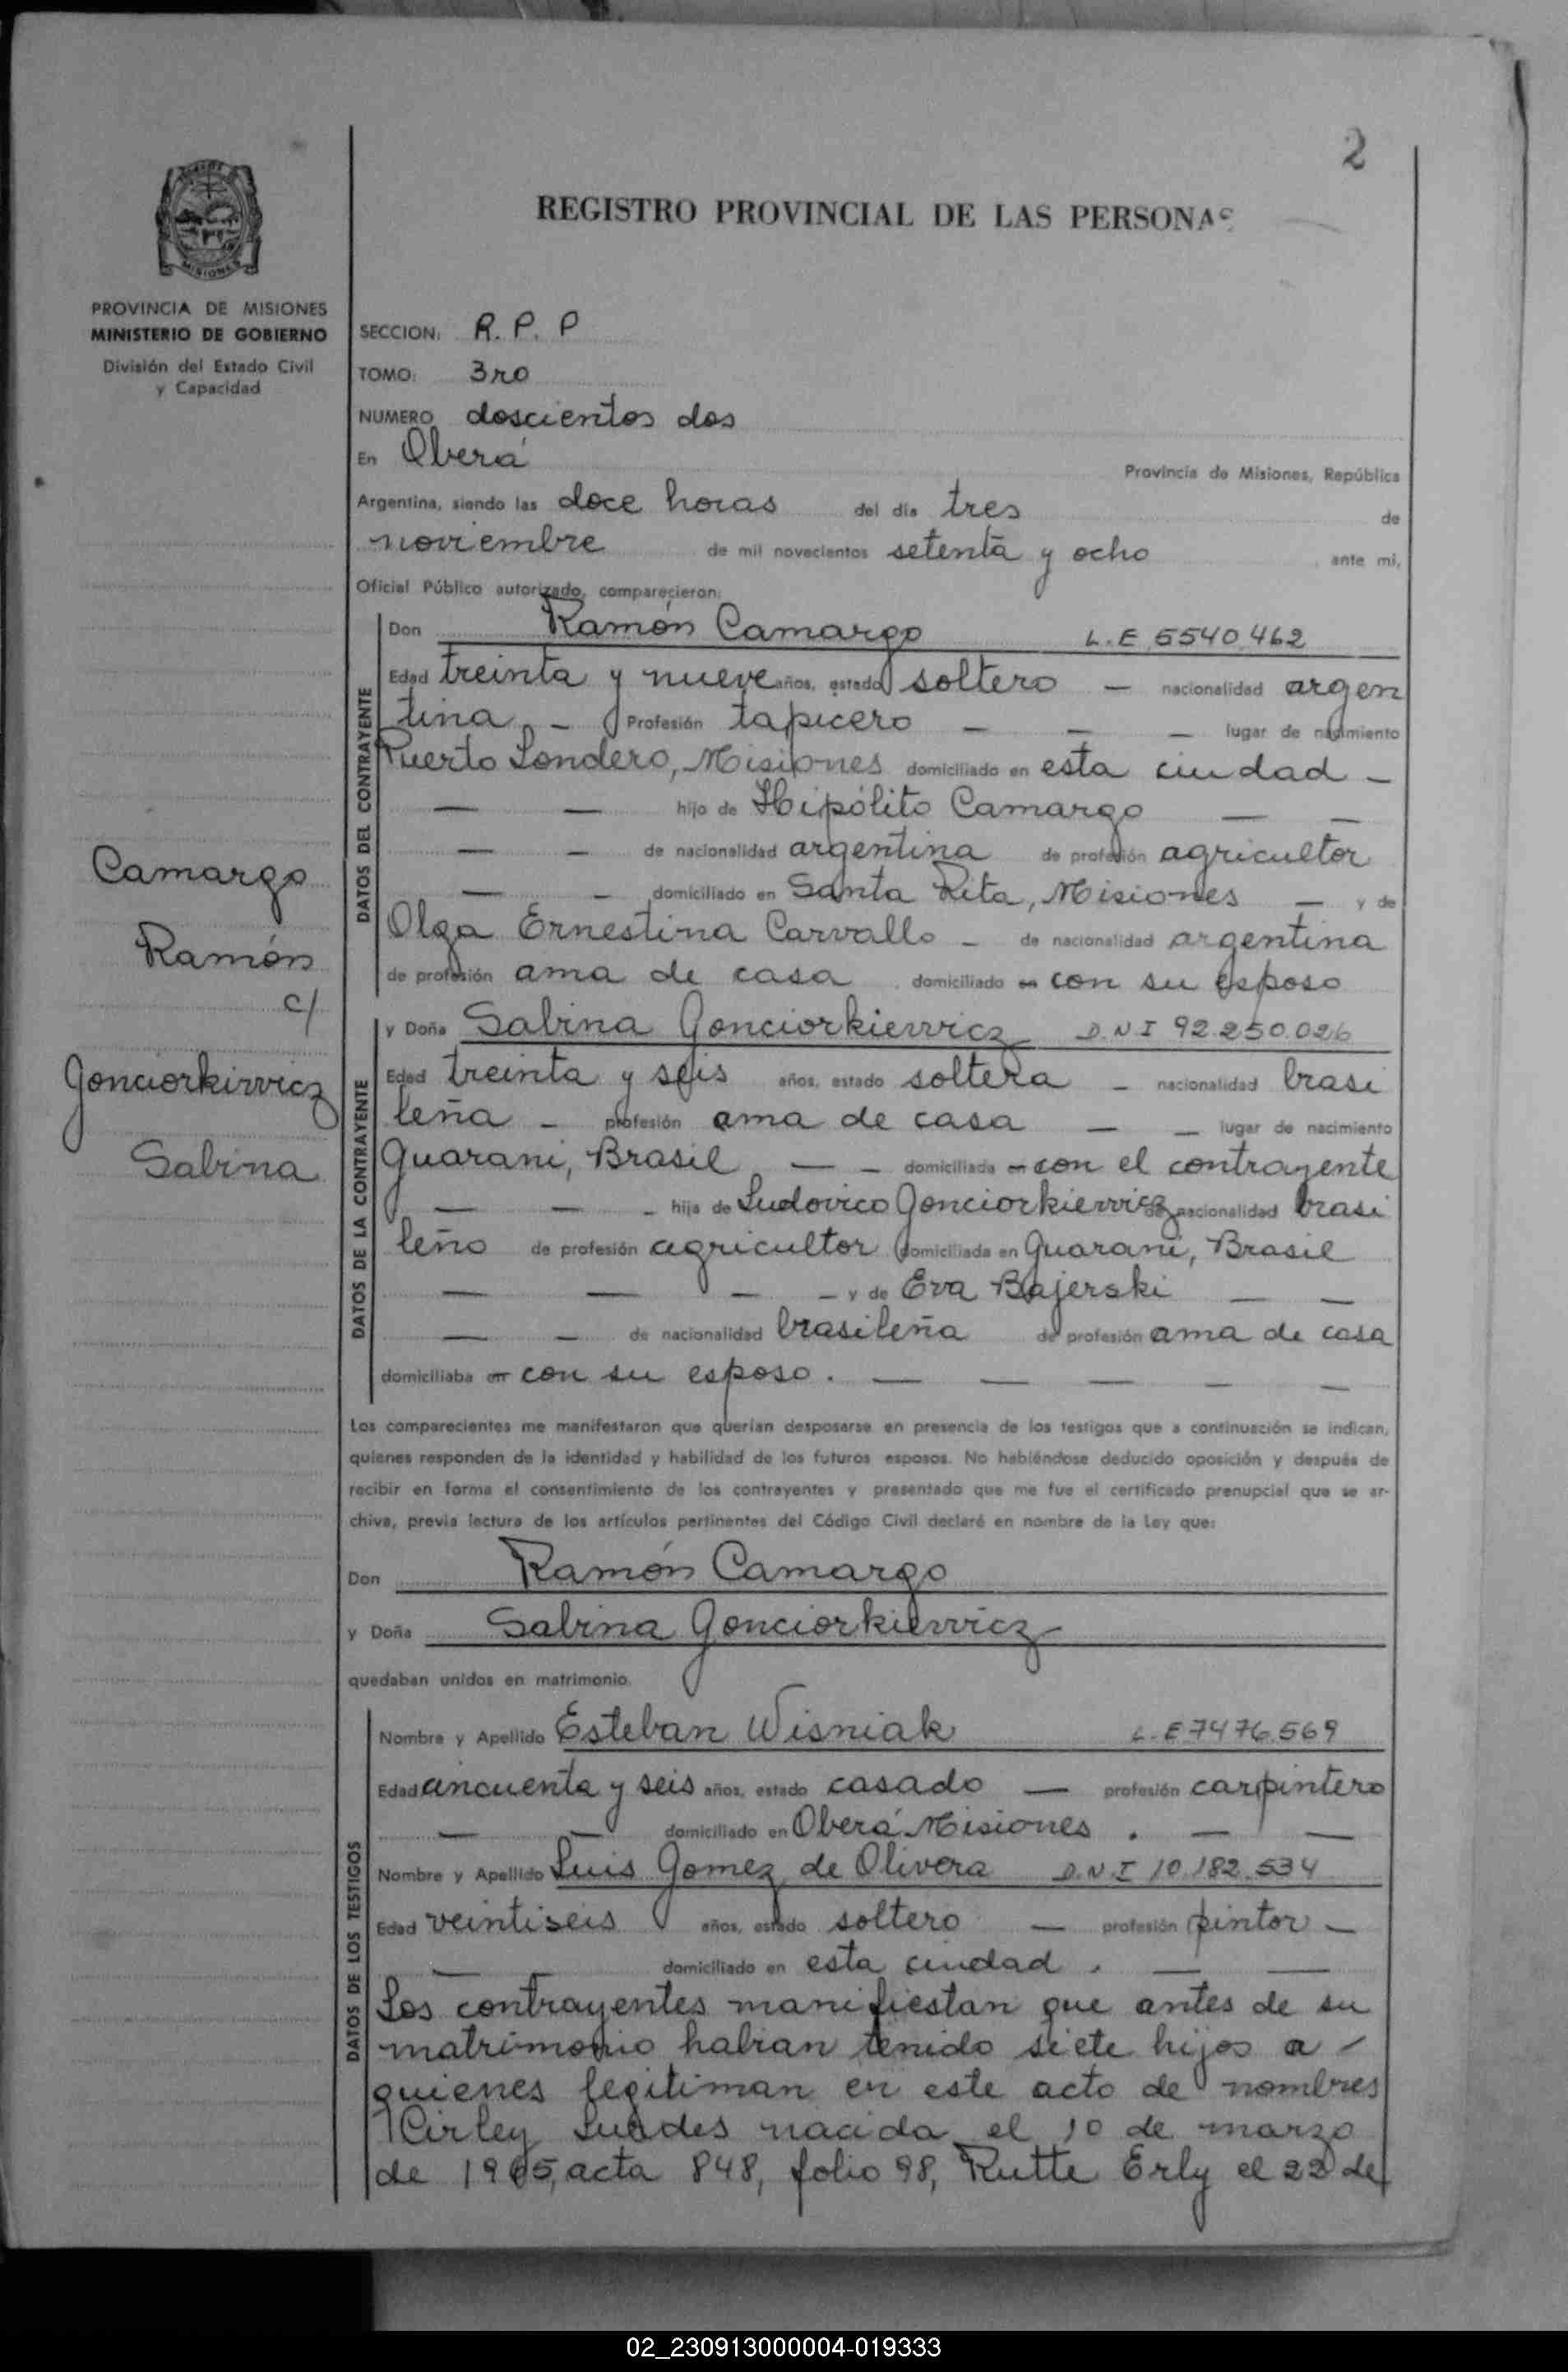 2
REGISTRO PROVINCIAL DE LAS PERSONAS
MISIONES
PROVINCIA DE MISIONES
MINISTERIO DE GOBIERNO
División del Estado Civil
y Capacidad
SECCION: R. P. P
TOMO: 3ro
NUMERO doscientos dos
En Oberá
Provincia de Misiones, República
Argentina, siendo las doce horas del día tres de
noviembre de mil novecientos setenta y ocho ante mi,
Oficial Público autorizado, comparecieron:
DATOS DEL CONTRAYENTE
Don Ramón Camargo L.E 5540.462
Edad treinta y nueve años, estado soltero — nacionalidad argen
tina - Profesión tapicero — — — lugar de nacimiento
Puerto Londero, Misiones domiciliado en esta ciudad -
— — hijo de Hipólito Camargo — —
— — de nacionalidad argentina de profesión agricultor
— - domiciliado en Santa Rita, Misiones — y de
Olga Ernestina Carvallo - de nacionalidad argentina
de profesión ama de casa domiciliado en con su esposo
Camargo
Ramón
c/
Gonciorkirvicz
Sabina
DATOS DE LA CONTRAYENTE
y Doña Sabina Gonciorkiewicz D.N I 92.250.026
Edad treinta y seis años, estado soltera - nacionalidad brasi
leña - profesión ama de casa — — lugar de nacimiento
Guarani, Brasil — - domiciliada en con el contrayente
— — - hija de Ludovico Gonciorkiewicz de nacionalidad brasi
leño de profesión agricultor domiciliada en Guarani, Brasil
— — — - y de Eva Bajerski — —
— — de nacionalidad brasileña de profesión ama de casa
domiciliaba en con su esposo. — — — — —
Los comparecientes me manifestaron que querían desposarse en presencia de los testigos que a continuación se indican,
quienes responden de la identidad y habilidad de los futuros esposos. No habiéndose deducido oposición y después de
recibir en forma el consentimiento de los contrayentes y presentado que me fue el certificado prenupcial que se ar-
chiva, previa lectura de los artículos pertinentes del Código Civil declaré en nombre de la Ley que:
Don Ramón Camargo
y Doña Sabina Gonciorkiewicz
quedaban unidos en matrimonio.
DATOS DE LOS TESTIGOS
Nombre y Apellido Esteban Wisniak L.E 7476.569
Edad cincuenta y seis años, estado casado — profesión carpintero
— — domiciliado en Oberá Misiones . — —
Nombre y Apellido Luis Gomez de Olivera D.N.I 10.182.534
Edad veintiseis años, estado soltero — profesión pintor -
— — domiciliado en esta ciudad . — —
Los contrayentes manifiestan que antes de su
matrimonio habian tenido siete hijos a -
quienes legitiman en este acto de nombres
Cirley nacida el 10 de marzo
de 1965, acta 848, folio 98, Rutte Erly el 22 de
02_230913000004-019333